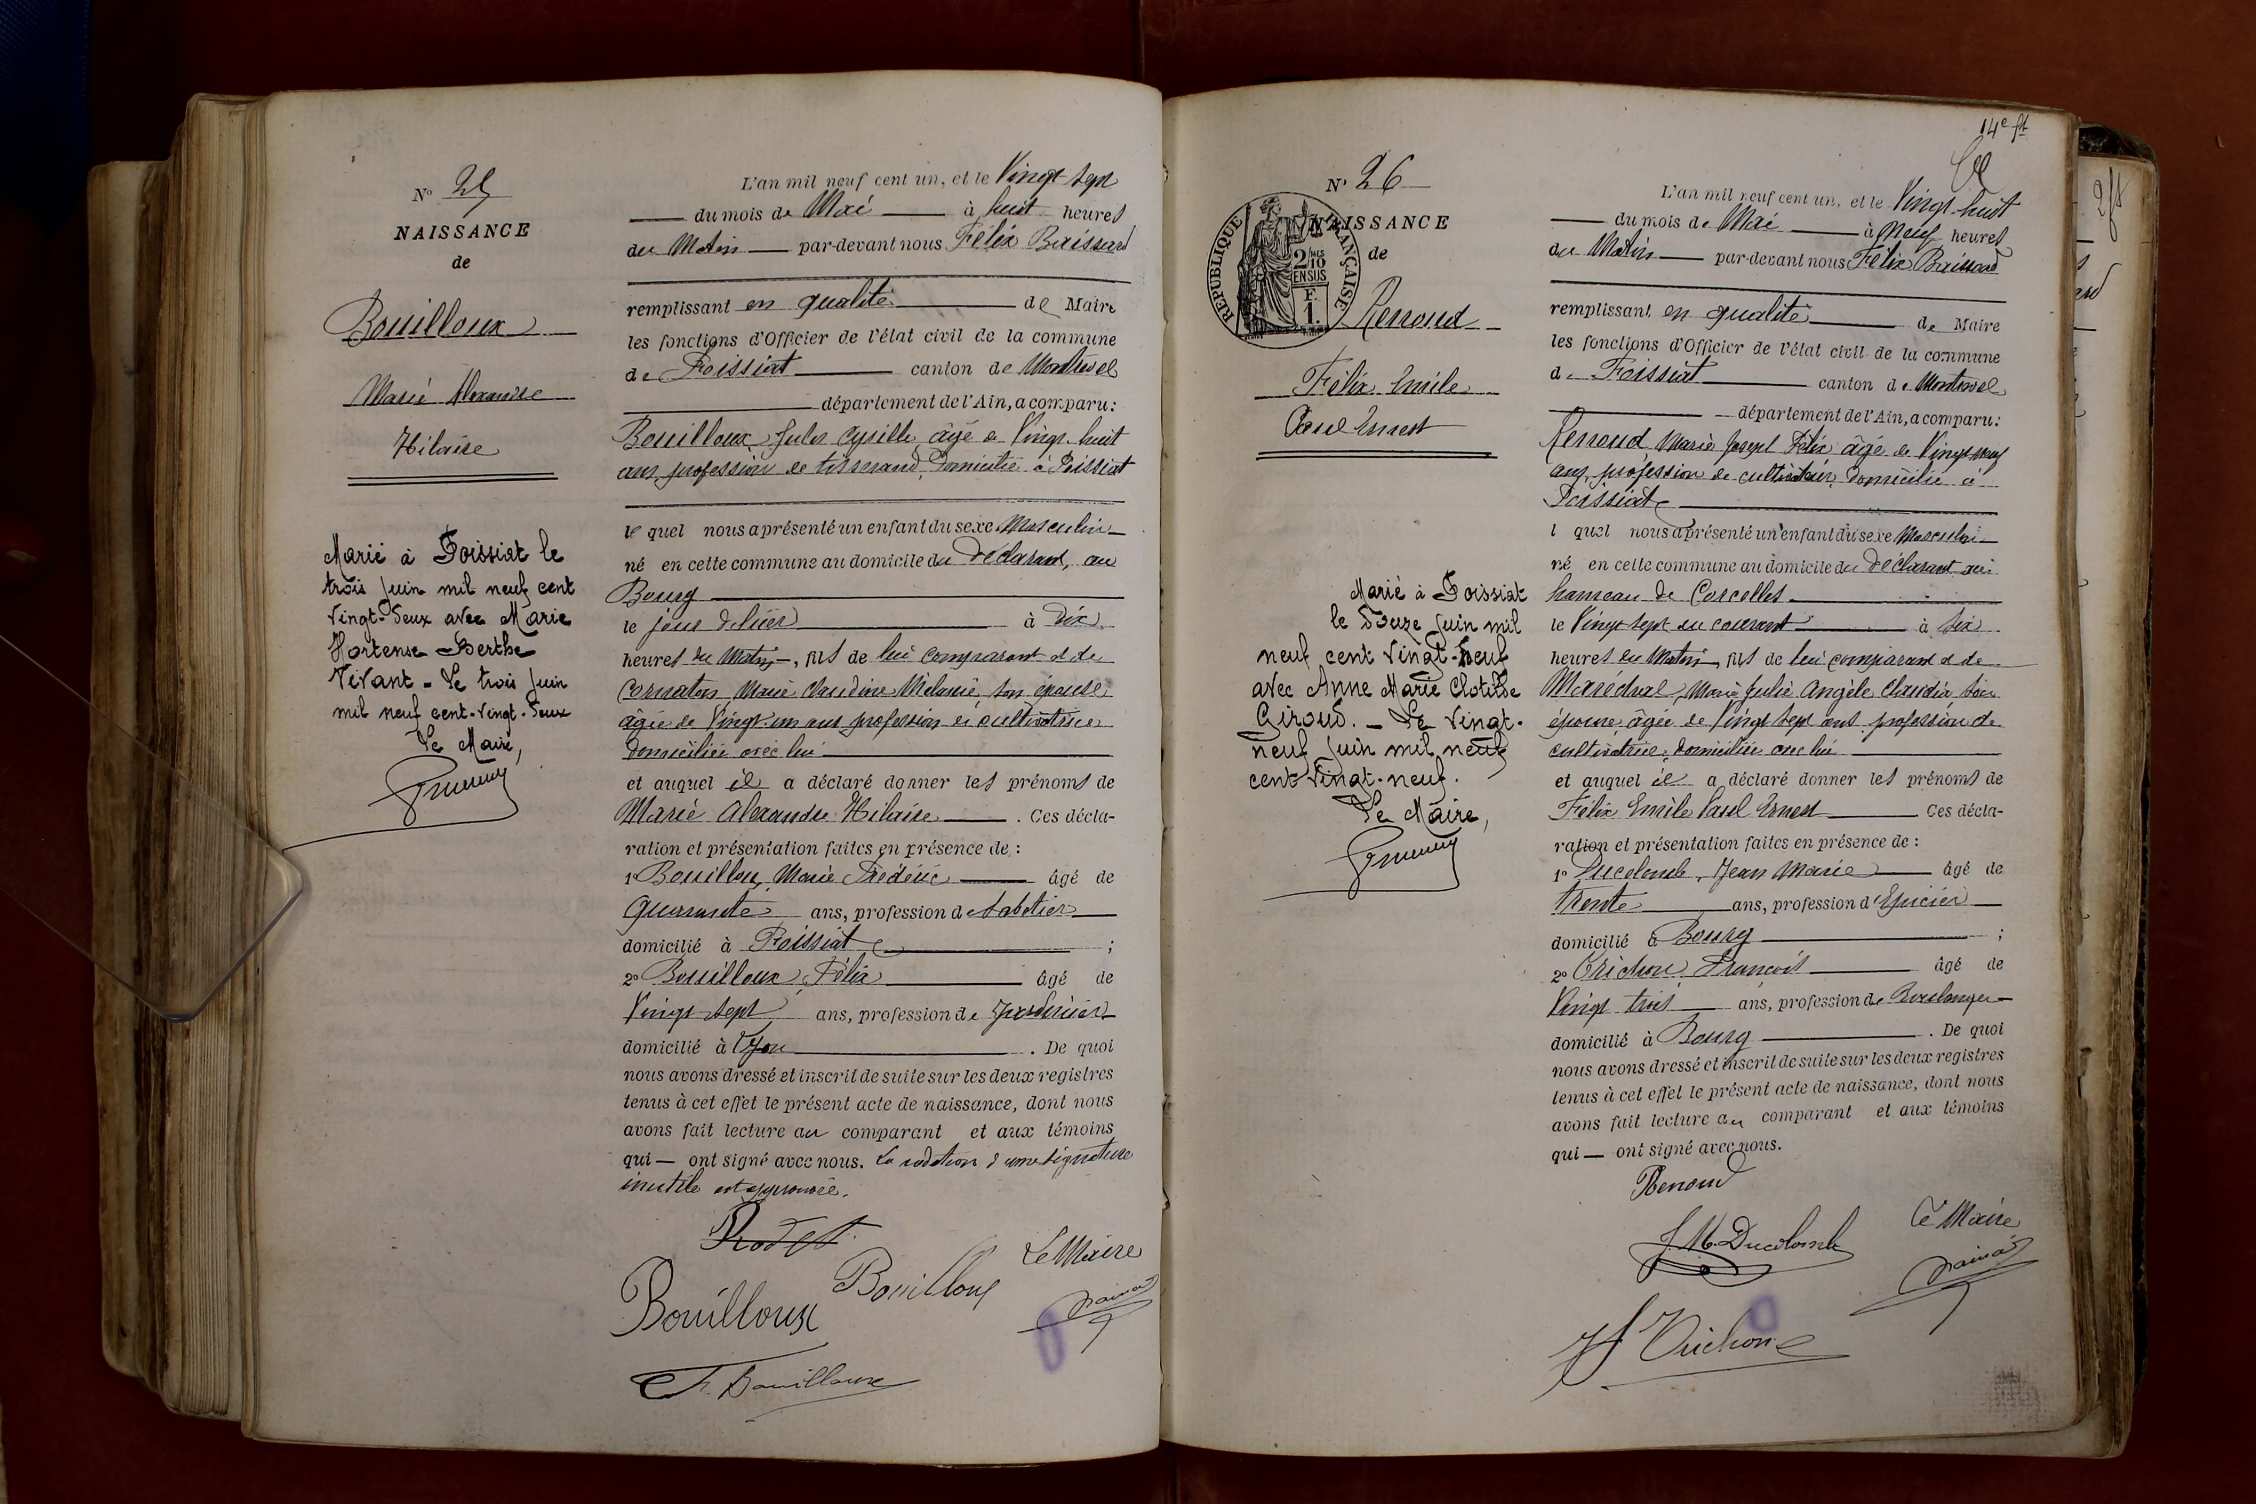 N° 25
NAISSANCE
de
Bouilloux
Marie Alexandre
Hilaire
Marié à Foissiat le
trois Juin mil neuf cent
Vingt-Deux avec Marie
Hortense Berthe
Vivant - Le trois Juin
mil neuf cent-vingt-Deux
Le Maire,
L'an mil neuf cent un, et le Vingt sept
du mois de Mai à huit heures
du Matin par-devant nous Félix Baissard
remplissant en qualité de Maire
les fonctions d'Officier de l'état civil de la commune
de Foissiat canton de Montrevel
département de l'Ain, a comparu:
Bouilloux Jules Cyrille âgé de Vingt-huit
ans, profession de tisserand, Domicilié à Foissiat
le quel nous a présenté un enfant du sexe Masculin
né en cette commune au domicile du Déclarant, au
Bourg
le jour d'hier à Dix
heures du Matin, fils de lui comparant et de
Cornaton Marie Claudine Mélanie, son épouse
âgée de Vingt-un ans profession de cultivatrice
Domiciliée avec lui
et auquel il a déclaré donner les prénoms de
Marie Alexandre Hilaire. Ces décla-
ration et présentation faites en présence de :
1° Bouilloux, Marie Frédéric âgé de
Quarante ans, profession de Sabotier
domicilié à Foissiat ;
2° Bouilloux, Félix âgé de
Vingt sept ans, profession de Jardinier
domicilié à Lyon. De quoi
nous avons dressé et inscrit de suite sur les deux registres
tenus à cet effet le présent acte de naissance, dont nous
avons fait lecture au comparant et aux témoins
qui — ont signé avec nous. La radiation d'une signature
inutile est approuvée.
Rodet
Bouilloux Bouilloux Le Maire
F. Bouilloux
14e ft
N° 26
NAISSANCE
de
RÉPUBLIQUE FRANÇAISE
2/10
EN SUS
F.
1.
Renoud
Félix Emile
Paul Ernest
Marié à Foissiat
le Douze Juin mil
neuf cent Vingt-Neuf
avec Anne Marie Clotilde
Giroud. - Le Vingt-
neuf Juin mil neuf
cent Vingt-neuf.
Le Maire,
L'an mil neuf cent un, et le Vingt-huit
du mois de Mai à Neuf heures
du Matin par-devant nous Félix Baissard
remplissant en qualité de Maire
les fonctions d'Officier de l'état civil de la commune
de Foissiat canton de Montrevel
département de l'Ain, a comparu:
Renoud Marie Joseph Félix âgé de Vingt-neuf
ans, profession de cultivateur, Domicilié à
Foissiat
l quel nous a présenté un enfant du sexe Masculin
né en cette commune au domicile du Déclarant au
hameau de Corcelles
le Vingt sept du courant à six
heures du Matin, fils de lui comparant et de
Maréchal, Marie Julie Angèle Claudia son
épouse, âgée de Vingt sept ans, profession de
cultivatrice, Domiciliée avec lui
et auquel il a déclaré donner les prénoms de
Félix Emile Paul Ernest Ces décla-
ration et présentation faites en présence de :
1° Ducolomb, Jean Marie âgé de
trente ans, profession d'Epicier
domicilié à Bourg ;
2° Trichon, François âgé de
Vingt trois ans, profession de Boulanger
domicilié à Bourg. De quoi
nous avons dressé et inscrit de suite sur les deux registres
tenus à cet effet le présent acte de naissance, dont nous
avons fait lecture au comparant et aux témoins
qui — ont signé avec nous.
Renoud
J. M. Ducolomb Le Maire
F Trichon